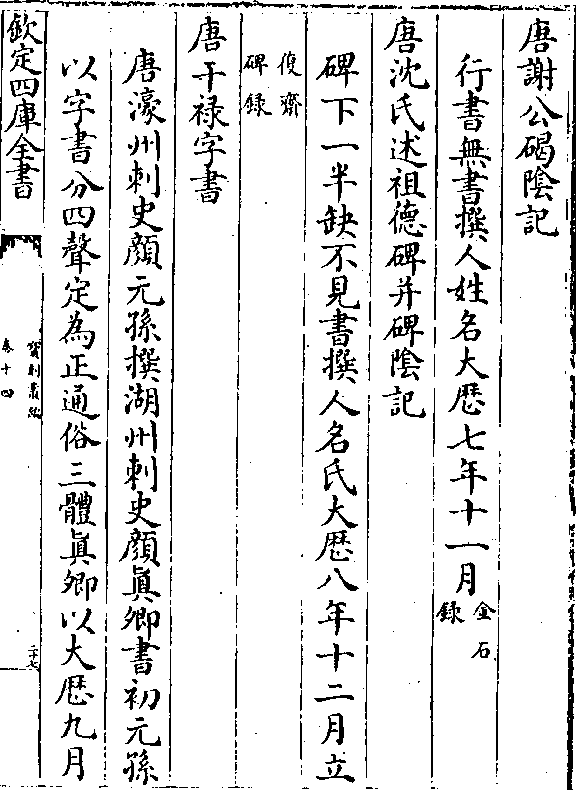 唐謝公碣陰記
行書無書撰人姓名大厯七年十一月金石
錄
唐沈氏述祖德碑并碑陰記
碑下一半缺不見書撰人名氏大厯八年十二月立
復齋
碑錄
唐干禄字書
唐濠州刺史顔元孫撰湖州刺史顔眞卿書初元孫
以字書分四聲定為正通俗三體眞卿以大厯九月
欽定四庫全書
寳刻叢編
卷十四
二十七